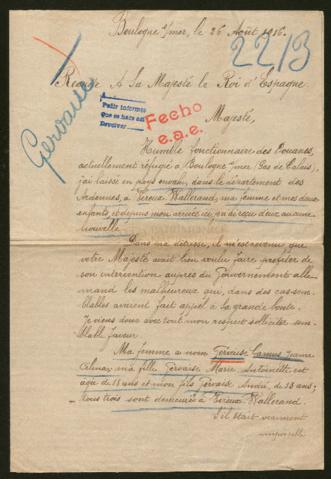 Boulogne s/mer, le 26 Août 1916.
22/3
Requête A Sa Majesté le Roi d'Espagne
Gervaise
Pedir informes
que se hace en
Fecho
e.a.e.
Majesté,
Humble fonctionnaire des Douanes,
actuellement réfugié à Boulogne s/mer (Pas de Calais),
j'ai laissé en pays envahi, dans le département des
Ardennes, à Vireux Wallerand, ma femme et mes deux
enfants, et depuis mon arrivée ici je n'ai reçu deux aucune
nouvelle.
Dans ma détresse, il m'est revenu que
votre Majesté avait bien voulu faire profiter de
son intervention auprès du Gouvernement alle-
mand les malheureux qui, dans des cas sem-
blables avaient fait appel à sa grande bonté.
Je viens donc avec tout mon respect solliciter sem-
blable faveur.
Ma femme a nom Gervaise Camus Jeanne
ma fille Gervaise Marie Antoinette est
agée de 18 ans et mon fils Gervaise André, de 13 ans;
tous trois sont domiciliés à Vireux Wallerand.
S'il était vraiment